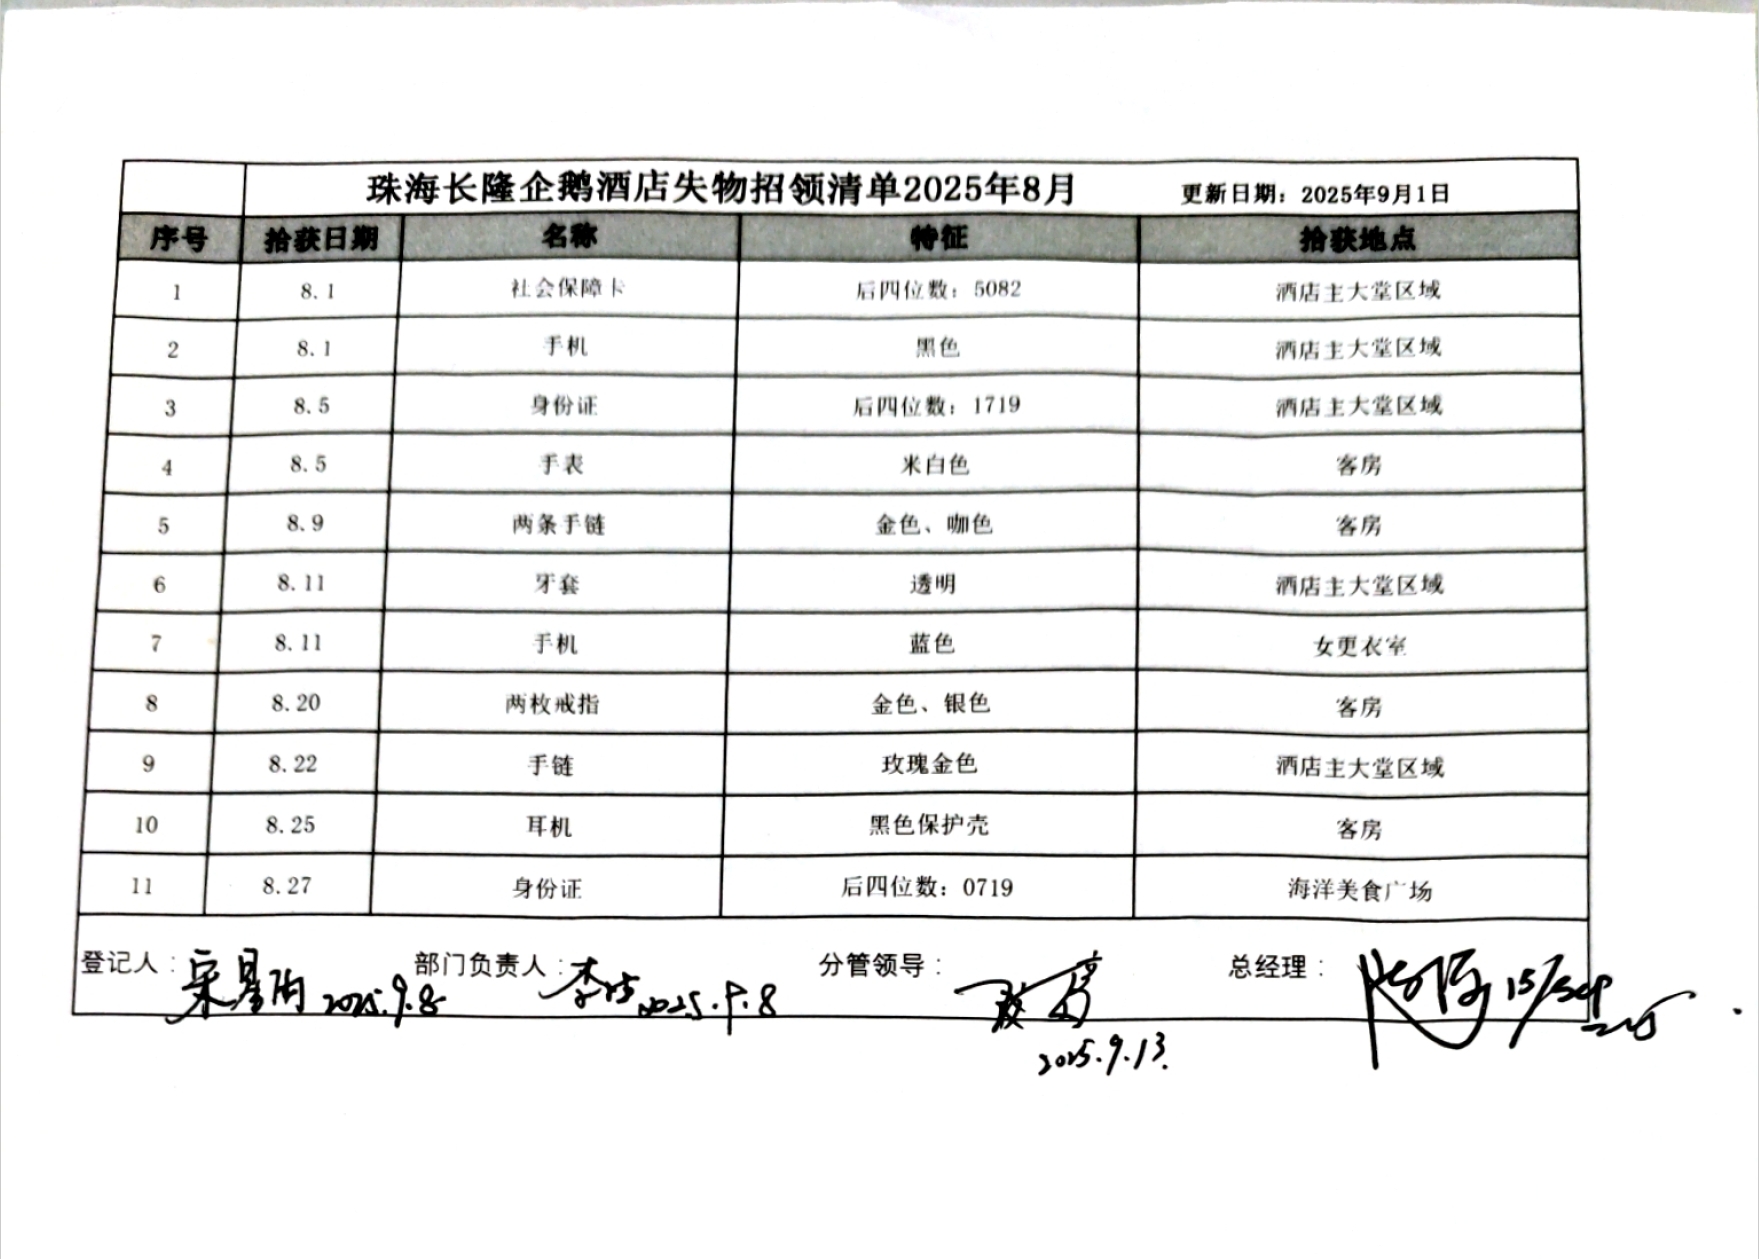 珠海长隆企鹅酒店失物招领清单2025年8月 更新日期：2025年9月1日
序号 拾获日期 名称 特征 拾获地点
1 8.1 社会保障卡 后四位数：5082 酒店主大堂区域
2 8.1 手机 黑色 酒店主大堂区域
3 8.5 身份证 后四位数：1719 酒店主大堂区域
4 8.5 手表 米白色 客房
5 8.9 两条手链 金色、咖色 客房
6 8.11 牙套 透明 酒店主大堂区域
7 8.11 手机 蓝色 女更衣室
8 8.20 两枚戒指 金色、银色 客房
9 8.22 手链 玫瑰金色 酒店主大堂区域
10 8.25 耳机 黑色保护壳 客房
11 8.27 身份证 后四位数：0719 海洋美食广场
登记人： 2025.9.8 部门负责人： 2025.9.8 分管领导： 总经理： 15/Sep
2025.9.13.